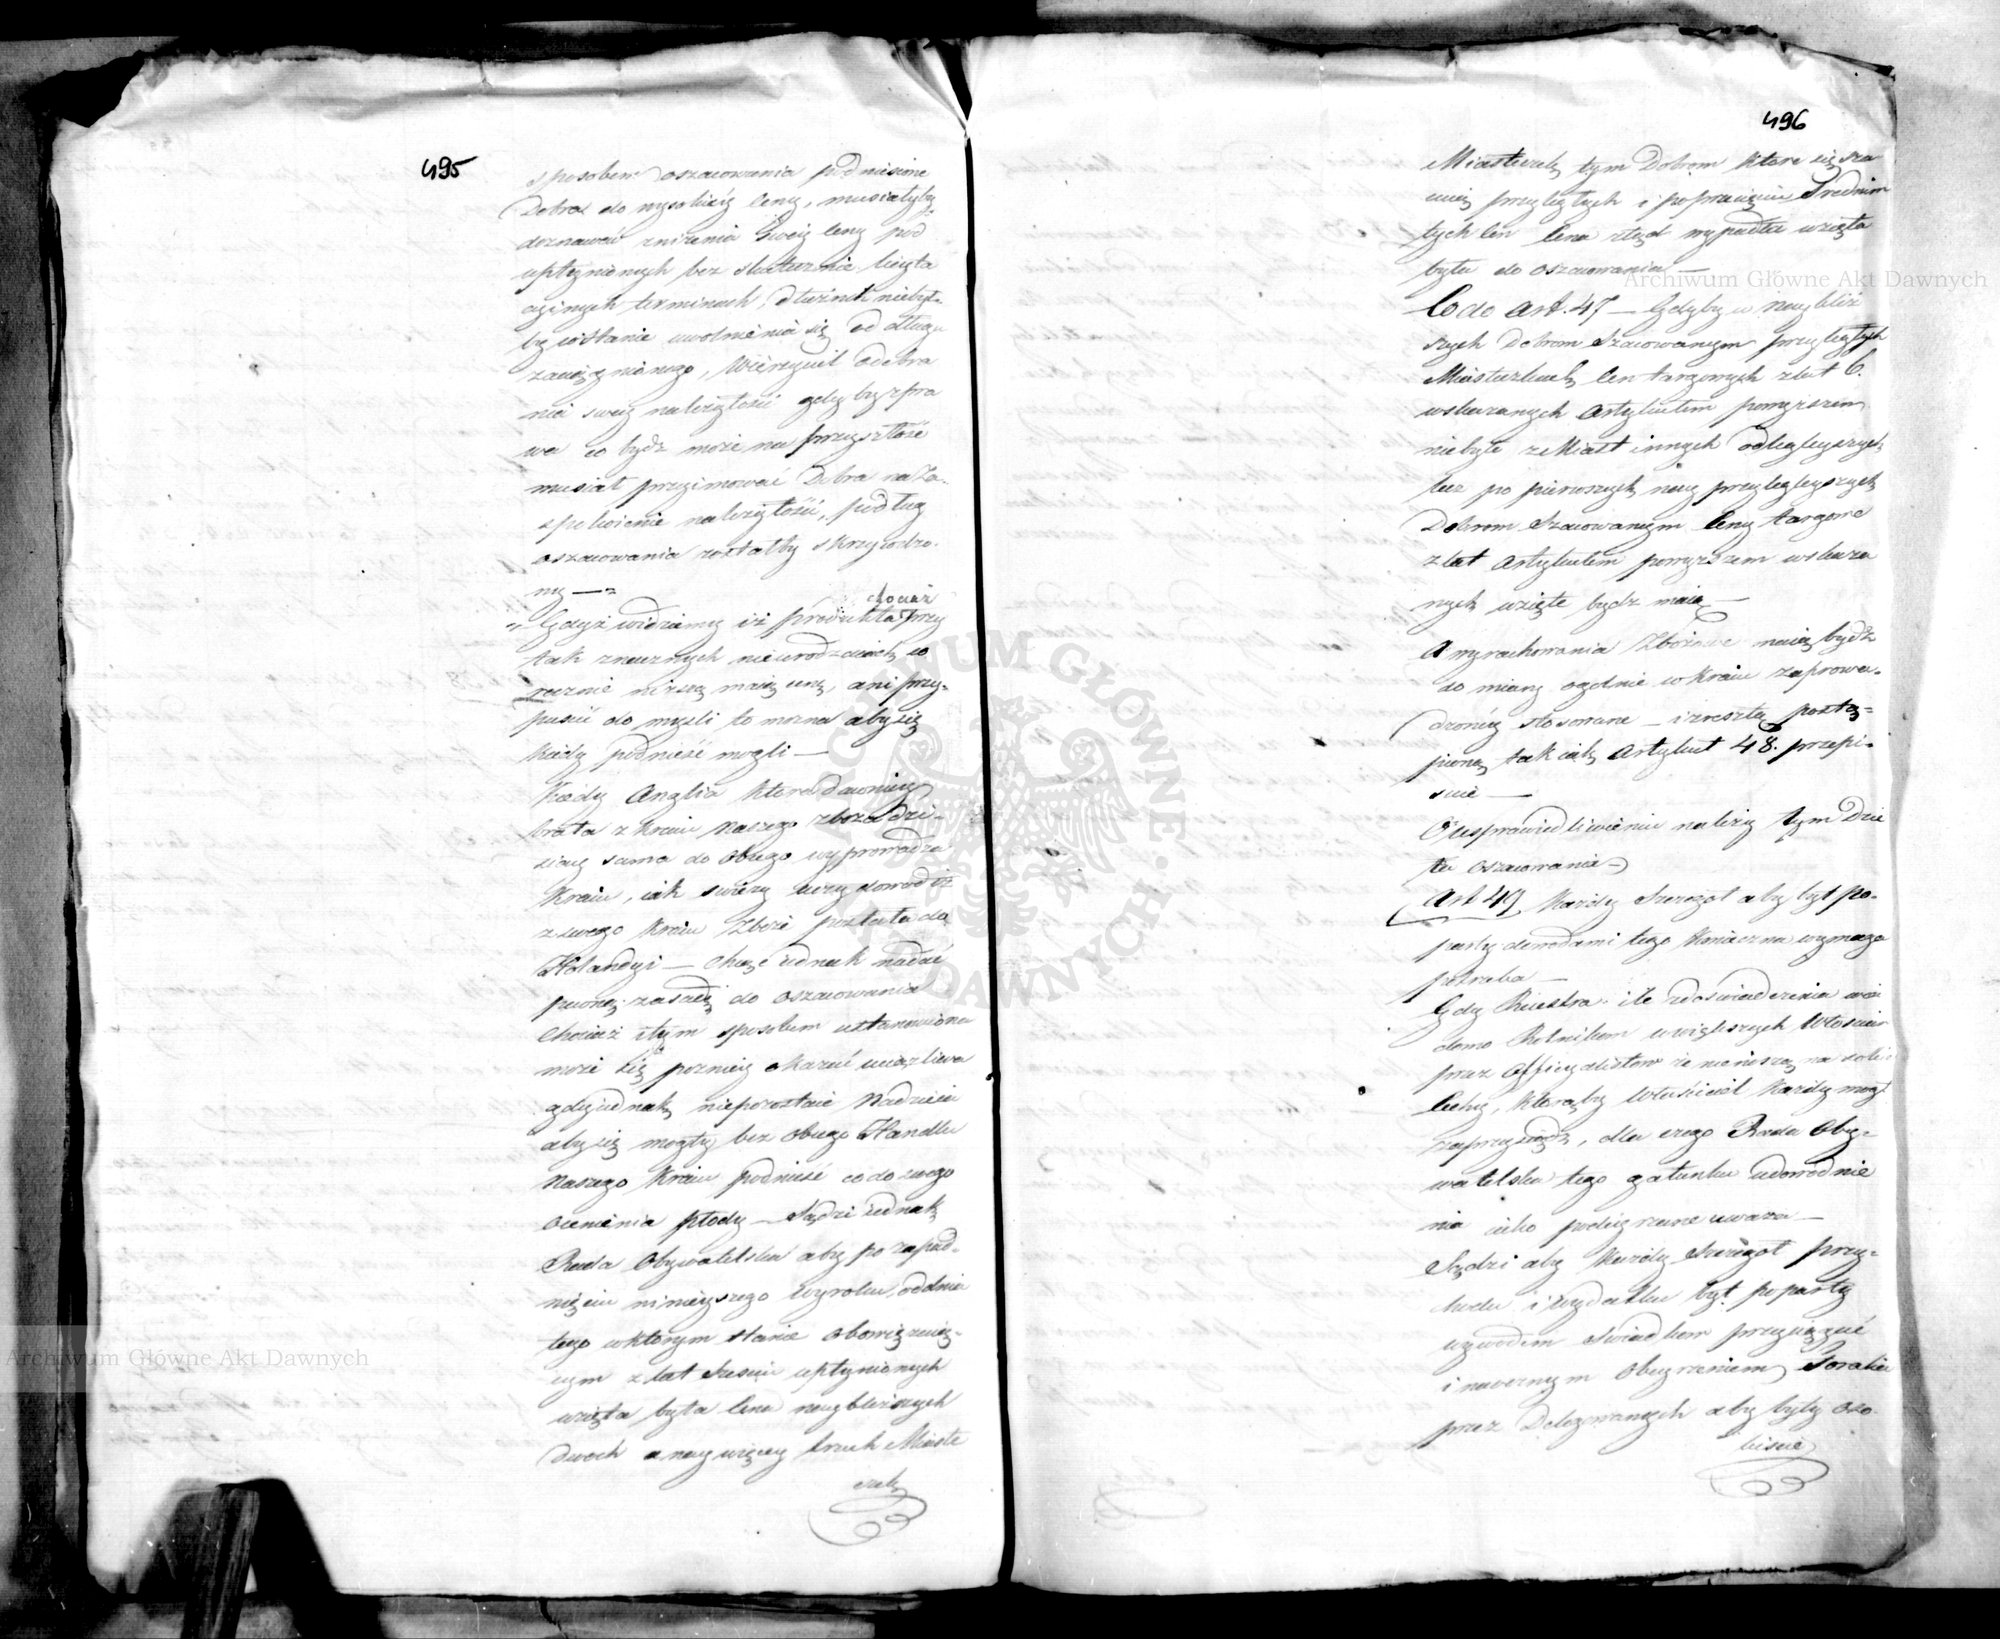 495
sposobem oszacowania podniesione
Dobra do wysokiéy Ceny, musiałyby
doznawać zniżenia Swéiy Ceny pod
upłynionych bez skutecznie licyta
cyinych terminach, dłużnik niebył-
by wstanie uwolnienia się od długu
zaciągnionego, Wierzyciel odebra
nia swéiy należytości gdyby z pra
wa co bydz może na przyszłość
musiał przyimować Dobra na Za-
spokoienie należytości, podług
oszacowania zostałby skrzywdzo-
ny —
chociaż
Gdyż widziemy iż produkta przy
tak znacznych nieurodzaiach co
rocznie niższą maią cenę, ani przy-
puścić do myśli to można aby się
kiedy podnieść mogli —
Kiedy Anglia która dawniéy
brała z Kraiu Naszego zboża dzi-
siay sama do Obcego wyprowadza
Kraiu, iak świeży uczy dowód iż
z swego Kraiu Zboże posłała do
Holandyi — chcąc iednak nadać
pewną zasadę do oszacowania
Chociaż i tym sposobem ustanowiona
może się pozniéy okazać uciążliwa
gdy iednak niepozostaie Nadzieia
aby się mogły bez Obcego Handlu
Naszego Kraiu podnieść co do swego
Ocenienia płody — Sądzi iednak
Rada Obywatelska aby po zapad-
nięciu ninieyszego Wyroku, od dnia
tego w którym stanie Obowiązuią-
cym z lat sześciu upłynionych
wzięta była Cena nayblizszych
dwoch a naywięcey trzech Miaste
czek
496
Miasteczek tym Dobrom które się sza
cuią przyległych i poprzecięciu Srednim
tych Cen Cena ztąd wypadła wzięta
była do oszacowania —
Co do Art. 47 — Gdyby w naybliż
szych Dobrom Szacowanym przyległych
Miasteczkach Cen targowych z lat 6.
wskazanych Artykułem powyższem
niebyło z Miast innych odlegleyszych
lecz po pierwszych nay przylegleyszych
Dobrom Szacowanym Ceny targowe
z lat Artykułem powyższem wskaza
nych wzięte bydz maią —
A wyrachowania Zbożowe maią bydź
do miary ogolnie w Kraiu zaprowa-
dzonéy stosowane — i zresztą postą-
pioną tak iak Artykuł 48. przepi-
suie —
O usprawiedliwieniu należy tym Dzie
ła oszacowania —
Art 49 Każdy Szczegół aby był po-
party dowodami tego Konieczna wymaga
potrzeba —
Gdy Reiestra ile z doświadczenia wia
domo Rolnikom w większych Włosciach
przez Officyalistow że nienoszą na sobie
Cechy, którąby Właściciel Każdy mogł
zaprzysiądz, dla czego Rada Oby-
watelska tego gatunku udowodnie
nia iako podeyrzane uważa —
Sądzi aby Każdy Szczegół przy-
chodu i wydatku był poparty
wywodem Swiadkow przysiądz
i naocznym Obeyrzeniem
przez Delegowanych aby byly oso-
biscie